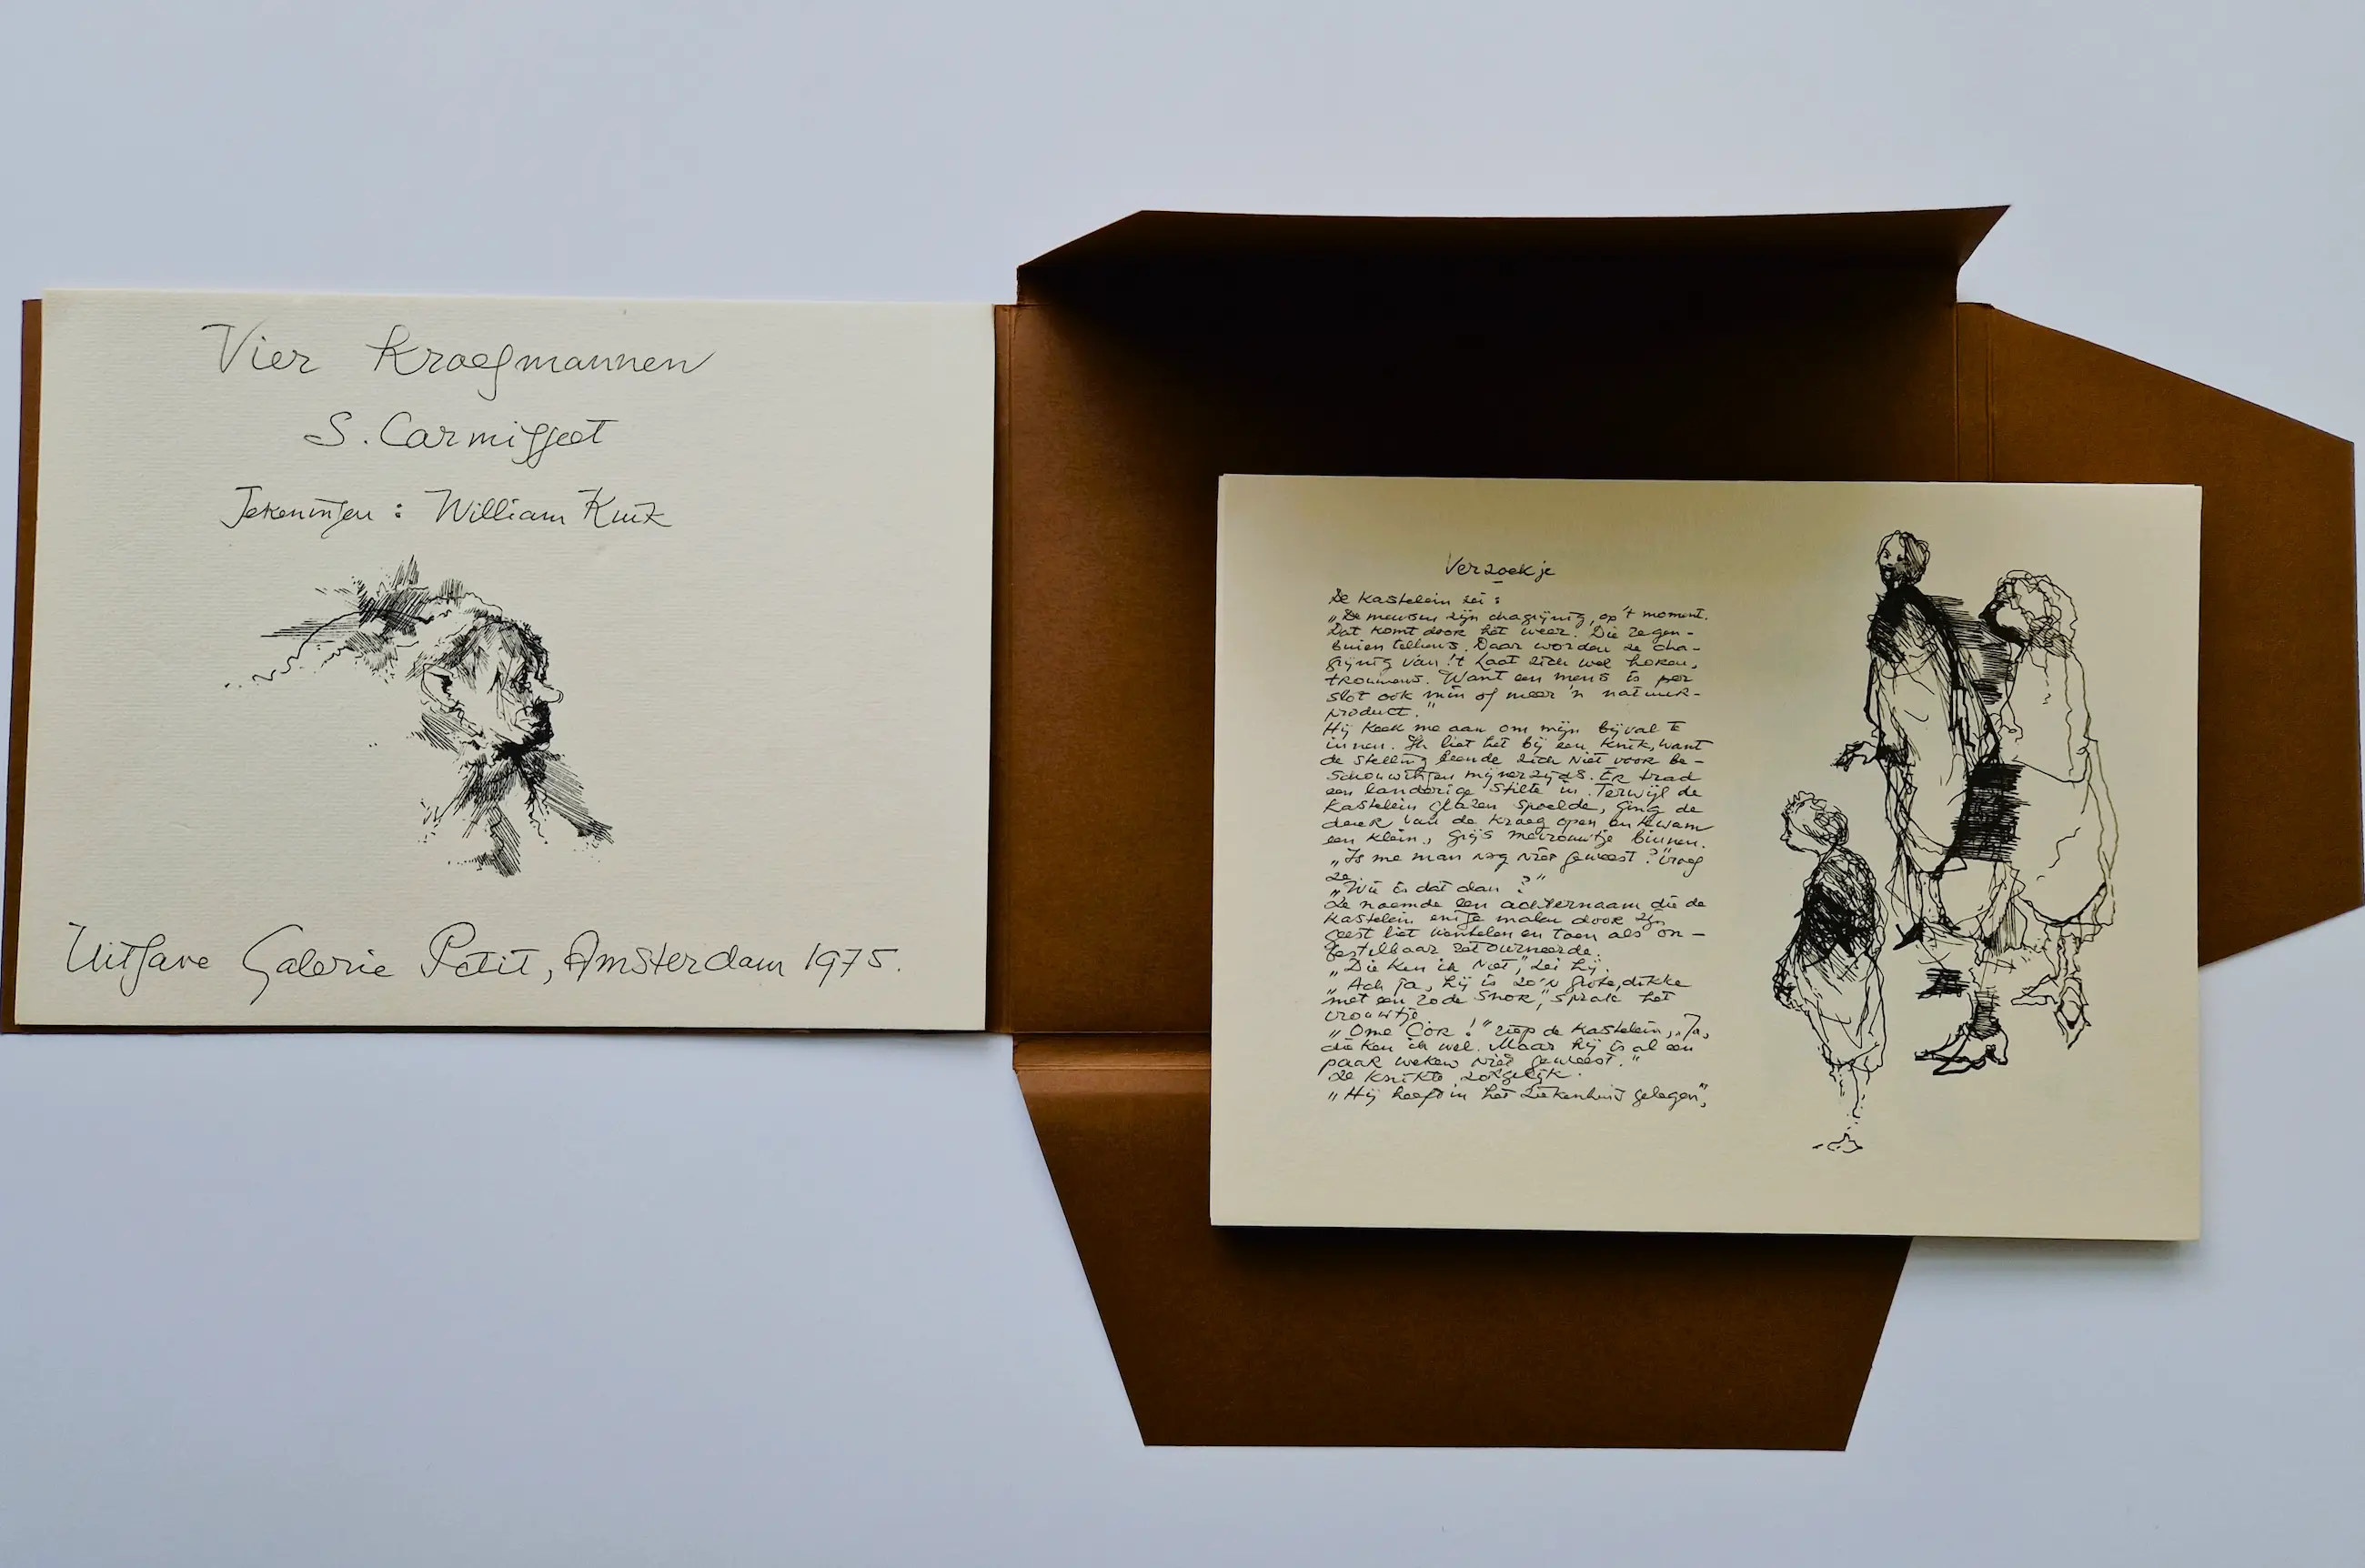 Vier Kroegmannen
S. Carmiggelt
Tekeningen : William Kuik
Uitgave Galerie Petit, Amsterdam 1975.
Verzoekje
De kastelein zei :
„De mensen zijn chagrijnig, op 't moment.
Dat komt door het weer. Die regen-
buien telkens. Daar worden ze cha-
grijnig van. 't Laat zich wel horen,
trouwens. Want een mens is per
slot ook min of meer 'n natuur-
product."
Hij keek me aan om mijn bijval te
innen. Ik liet het bij een knik, want
de stelling leende zich niet voor be-
schouwingen mijnerzijds. Er trad
een landerige stilte in. Terwijl de
kastelein glazen spoelde, ging de
deur van de kroeg open en kwam
een klein, grijs mevrouwtje binnen.
„Is me man nog niet geweest?" vroeg
ze.
„Wie is dat dan ?"
Ze noemde een achternaam die de
kastelein enige malen door zijn
geest liet wentelen en toen als on-
bestelbaar retourneerde.
„Die ken ik niet," zei hij.
„Ach ja, hij is zo'n grote, dikke
met een rode snor," sprak het
vrouwtje
„Ome Cor !" riep de kastelein, „Ja,
die ken ik wel. Maar hij is al een
paar weken niet geweest."
Ze knikte zorgelijk.
„Hij heeft in het ziekenhuis gelegen",